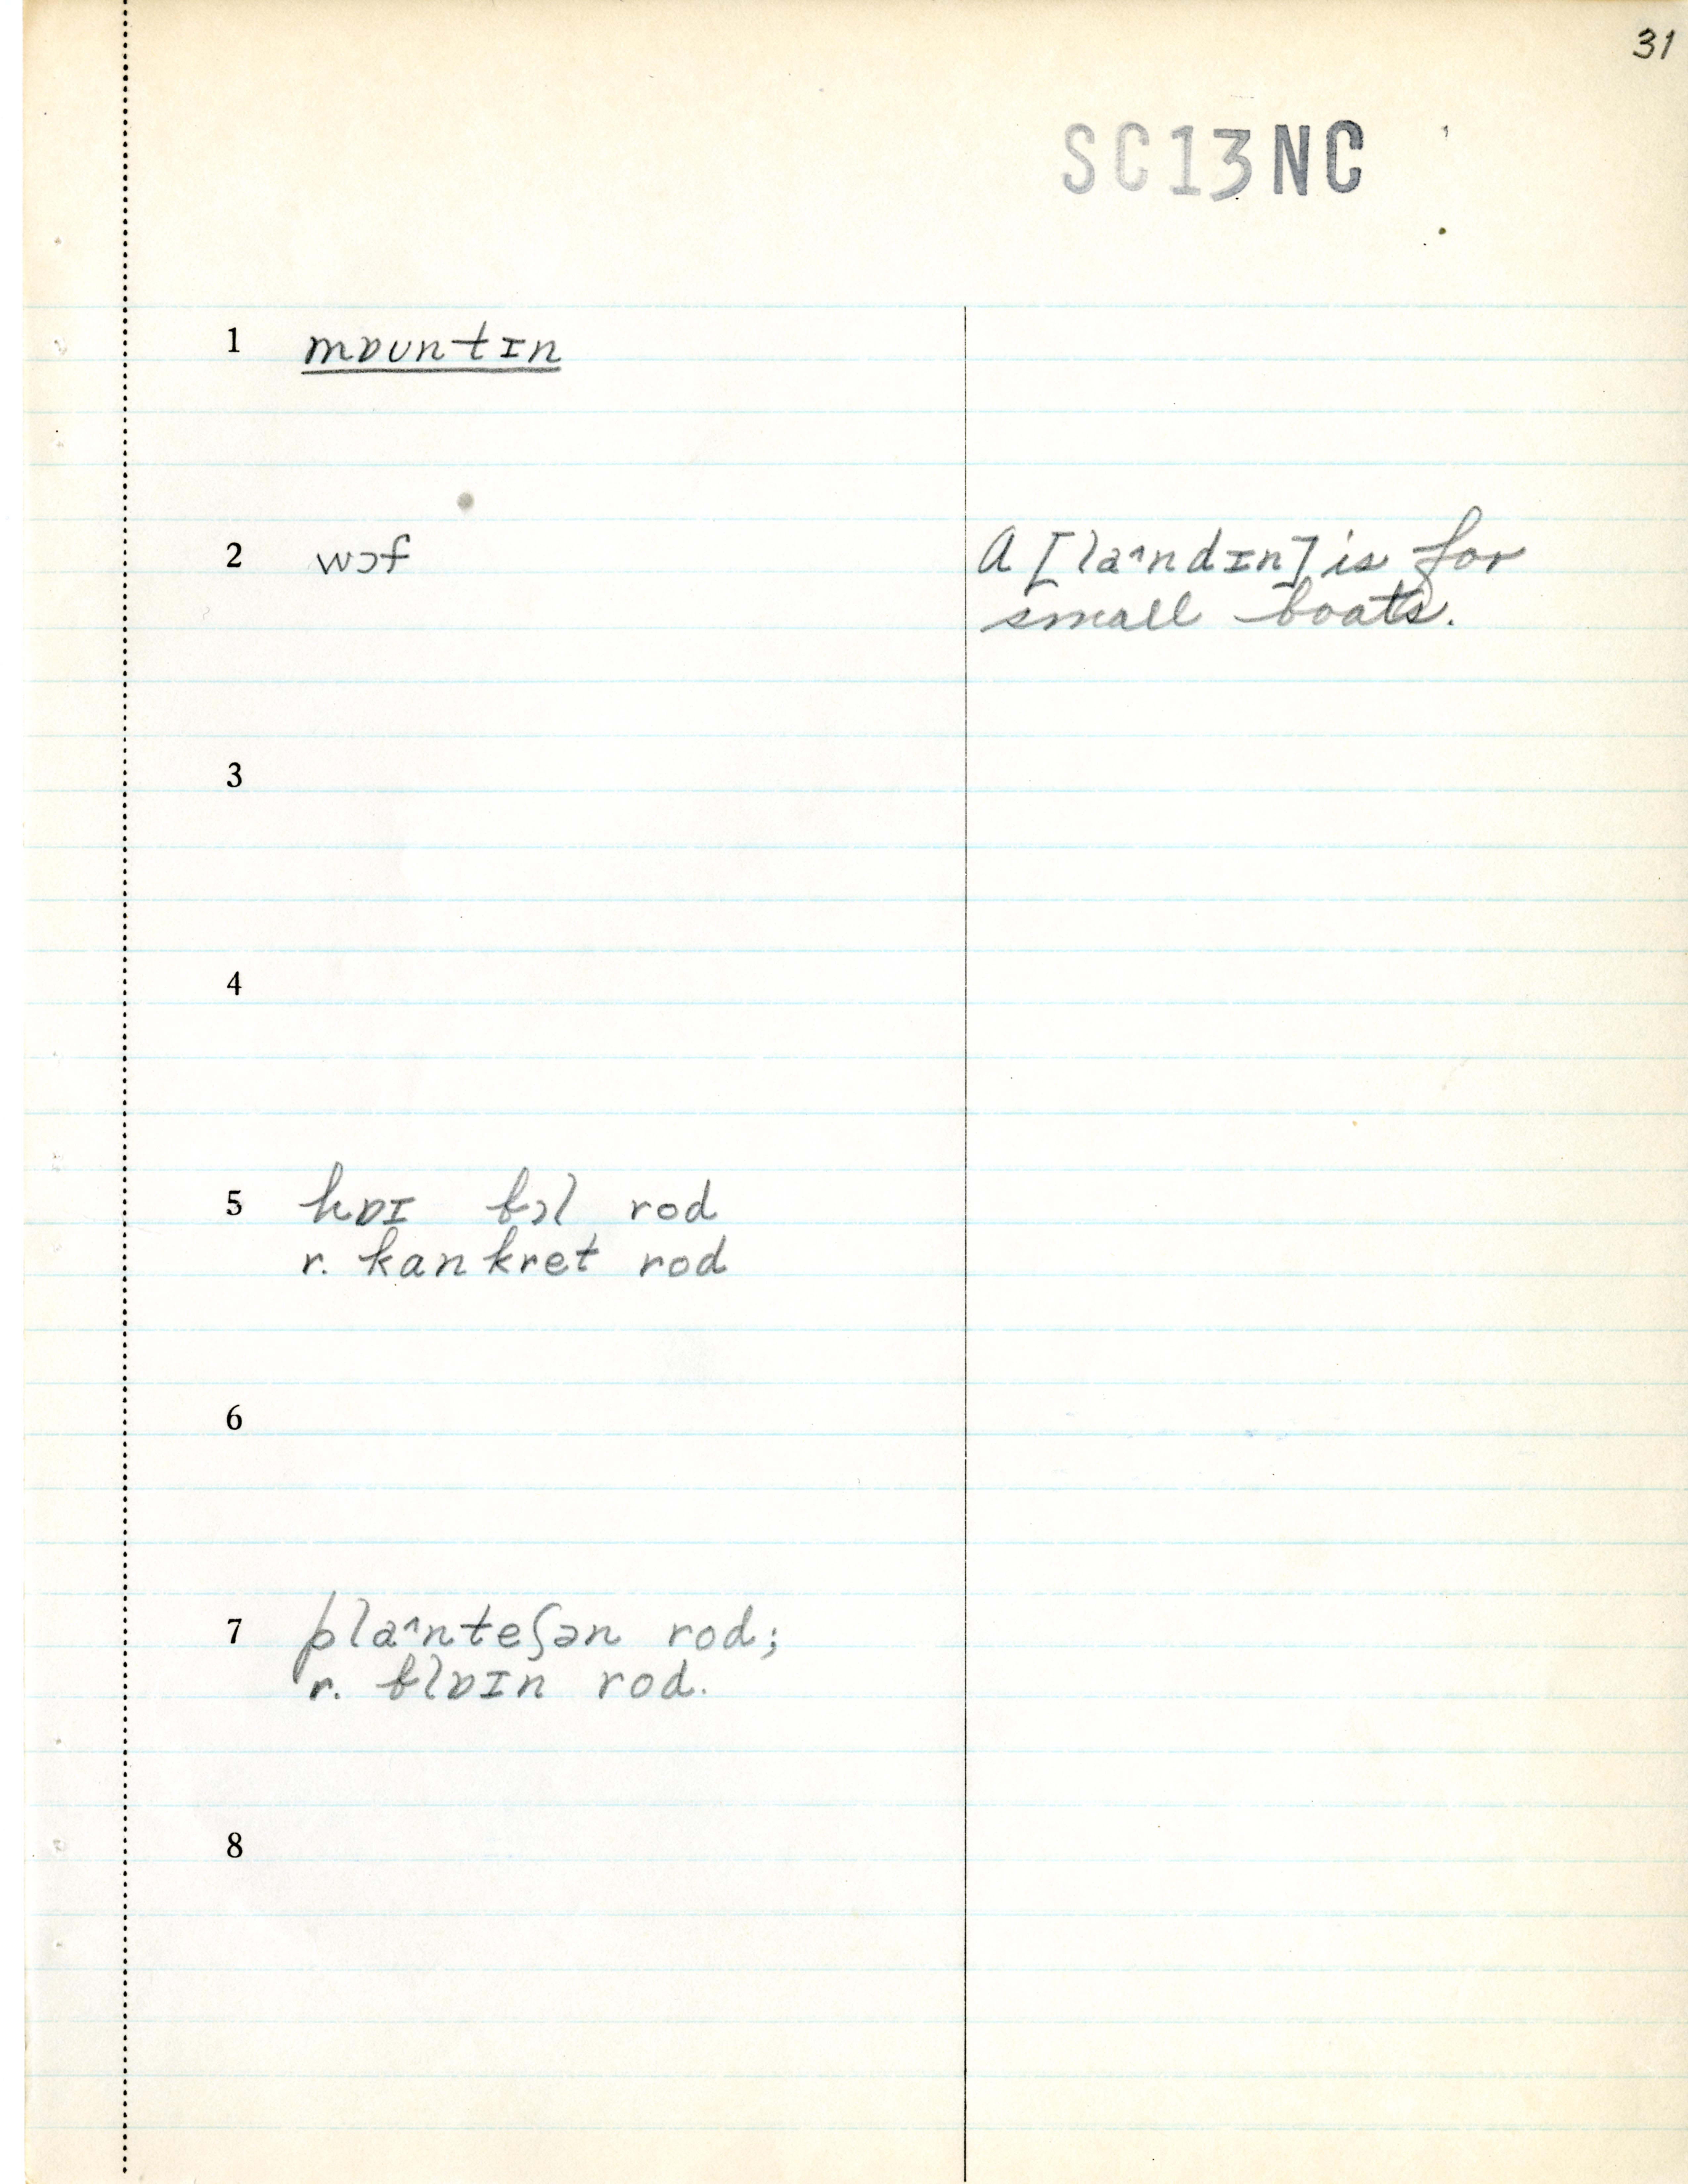 31
SC13NC
1 mɒʊntɪn
2 wɔf
A [la^ndɪn] is for
small boats.
3
4
5 hɒɪ fɔl rod
r. kankret rod
6
7 pla^nteʃən rod;
r. blɒɪn rod.
8